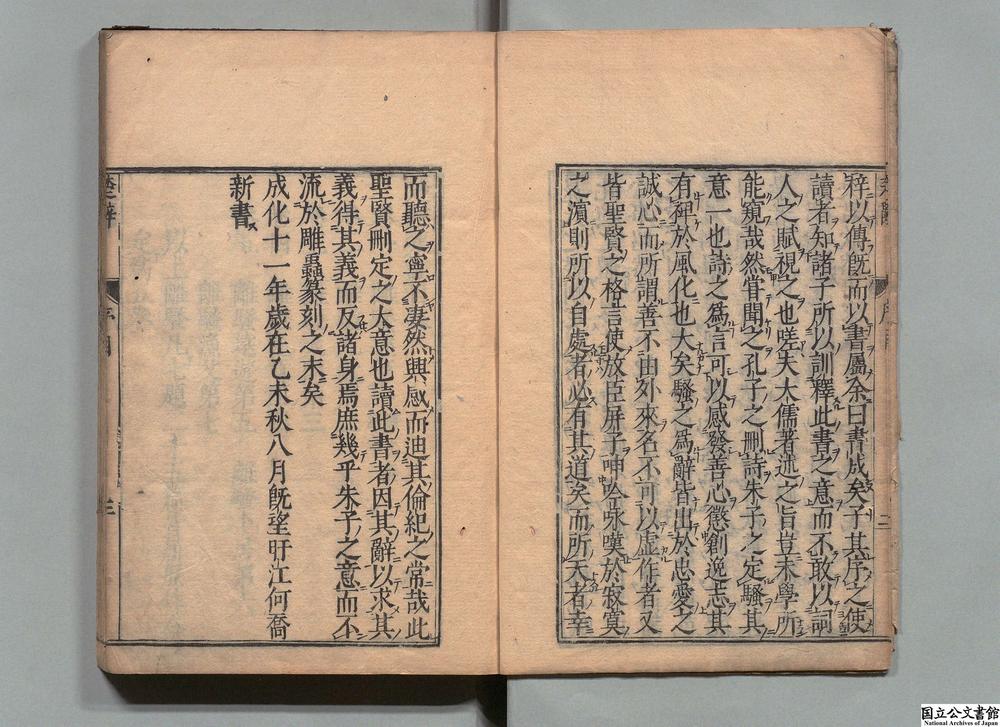 梓以傳既而以書屬余曰書成矣子其序之使
讀者知諸子所以訓釋此書之意而不敢以詞
人之賦視之也嗟夫大儒著述之旨豈末學所
能窺哉然嘗聞之孔子之刪詩朱子之定騷其
意一也詩之爲言可以感發善心懲創逸志其
有裨於風化也大矣騷之爲辭皆出於忠愛之
誠心而所謂善不由外來名不可以虛作者又
皆聖賢之格言使放臣屏子呻吟咏嘆於寂寞
之濱則所以自處者必有其道矣而所天者幸
而聽之寧不凄然興感而迪其倫紀之常哉此
聖賢刪定之大意也讀此書者因其辭以求其
義得其義而反諸身焉庶幾乎朱子之意而不
流於雕蟲篆刻之末矣
成化十一年歲在乙未秋八月既望旴江何喬
新書
楚辭
序
三
国立公文書館
National Archives of Japan